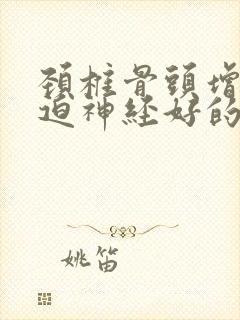 頚椎骨頭增
迫神经好的
姚笛